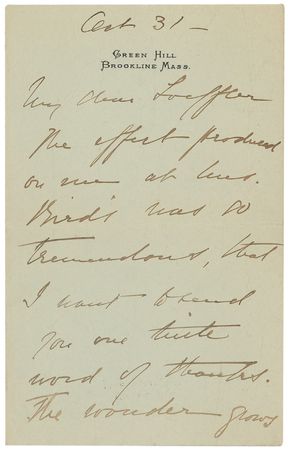 Oct 31 –
GREEN HILL
BROOKLINE MASS.
My dear Loeffler
The effect produced
on me at Mrs.
Bird's was so
tremendous, that
I want to send
you one little
word of thanks.
The wonder grows